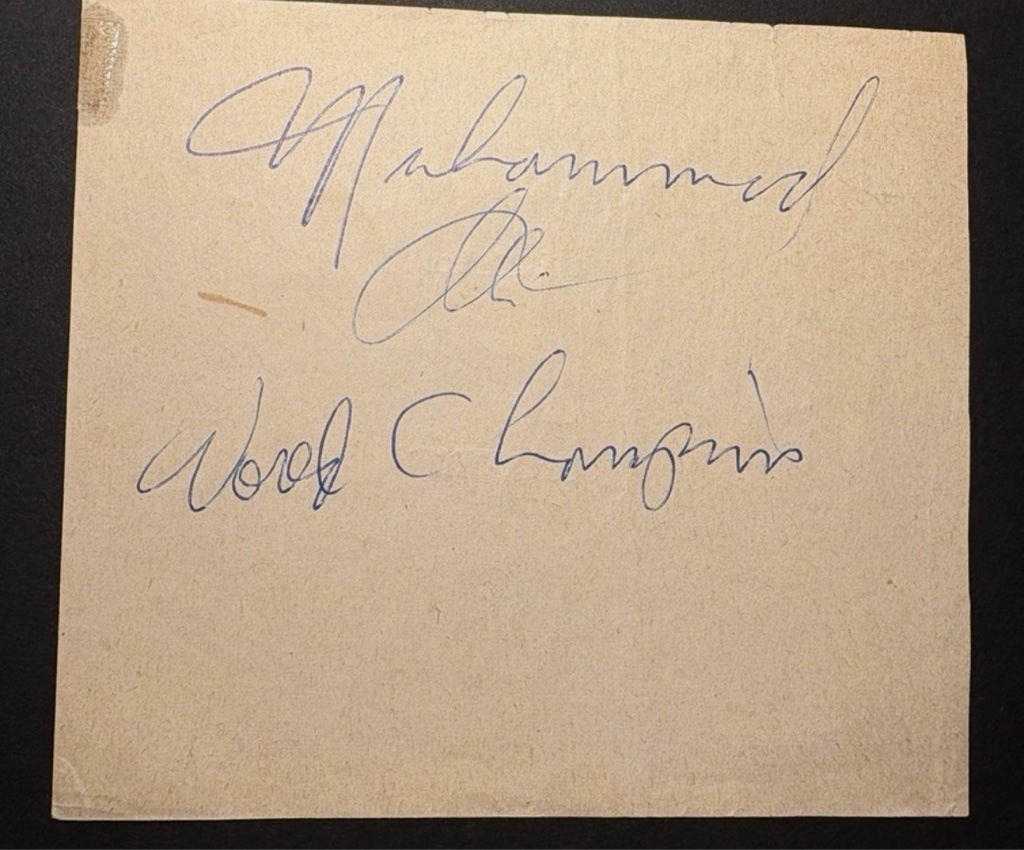 Muhammad
Ali
World Champion